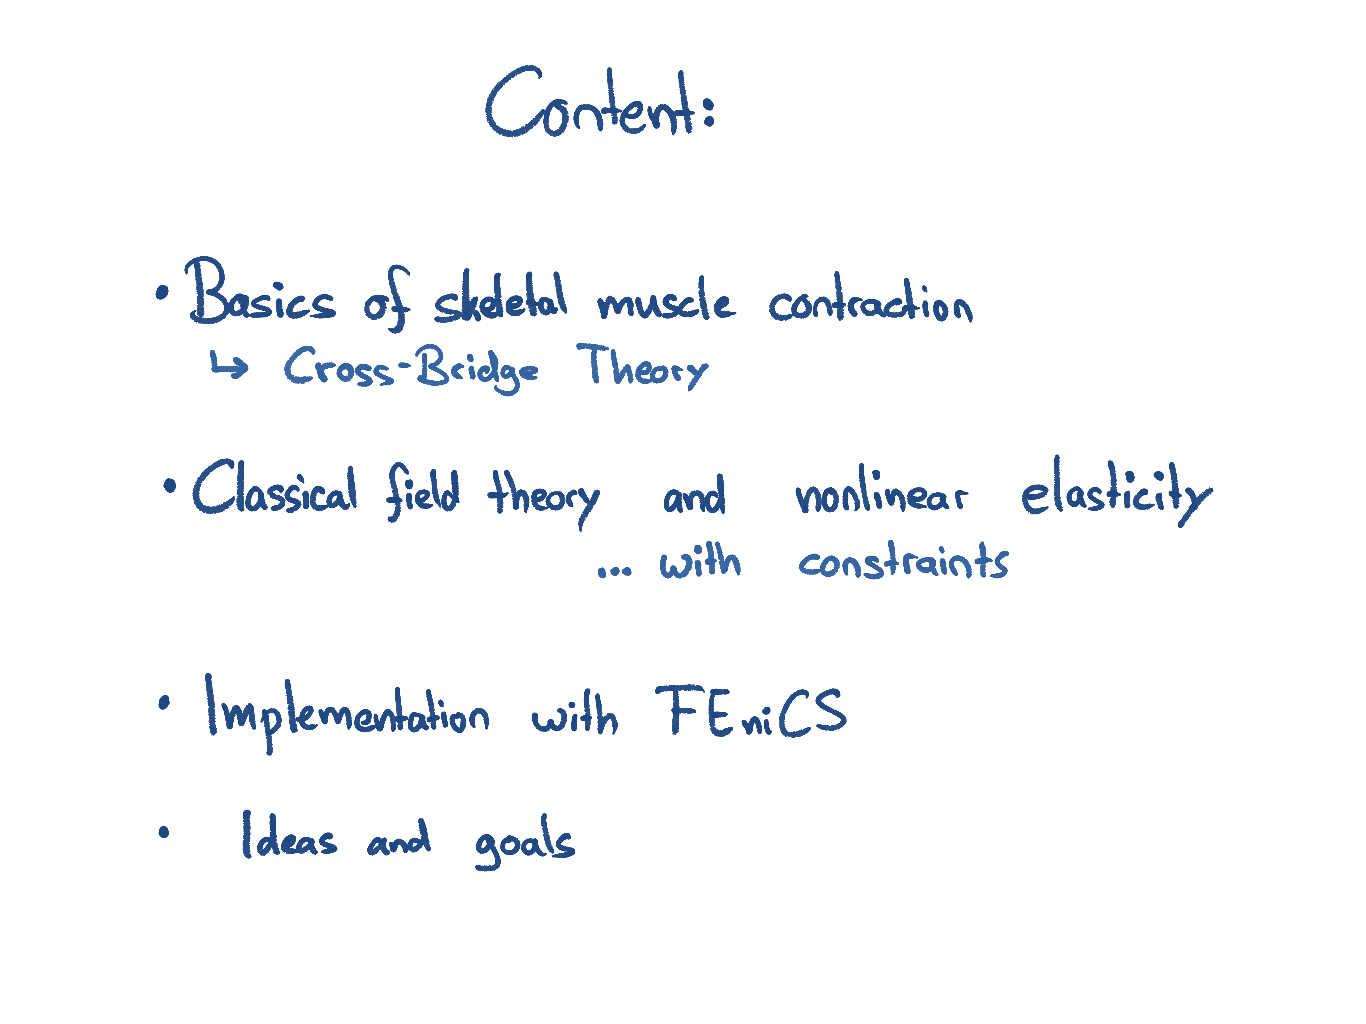 Content:
• Basics of skeletal muscle contraction
↳ Cross-Bridge Theory
• Classical field theory and nonlinear elasticity
... with constraints
• Implementation with FEniCS
• Ideas and goals